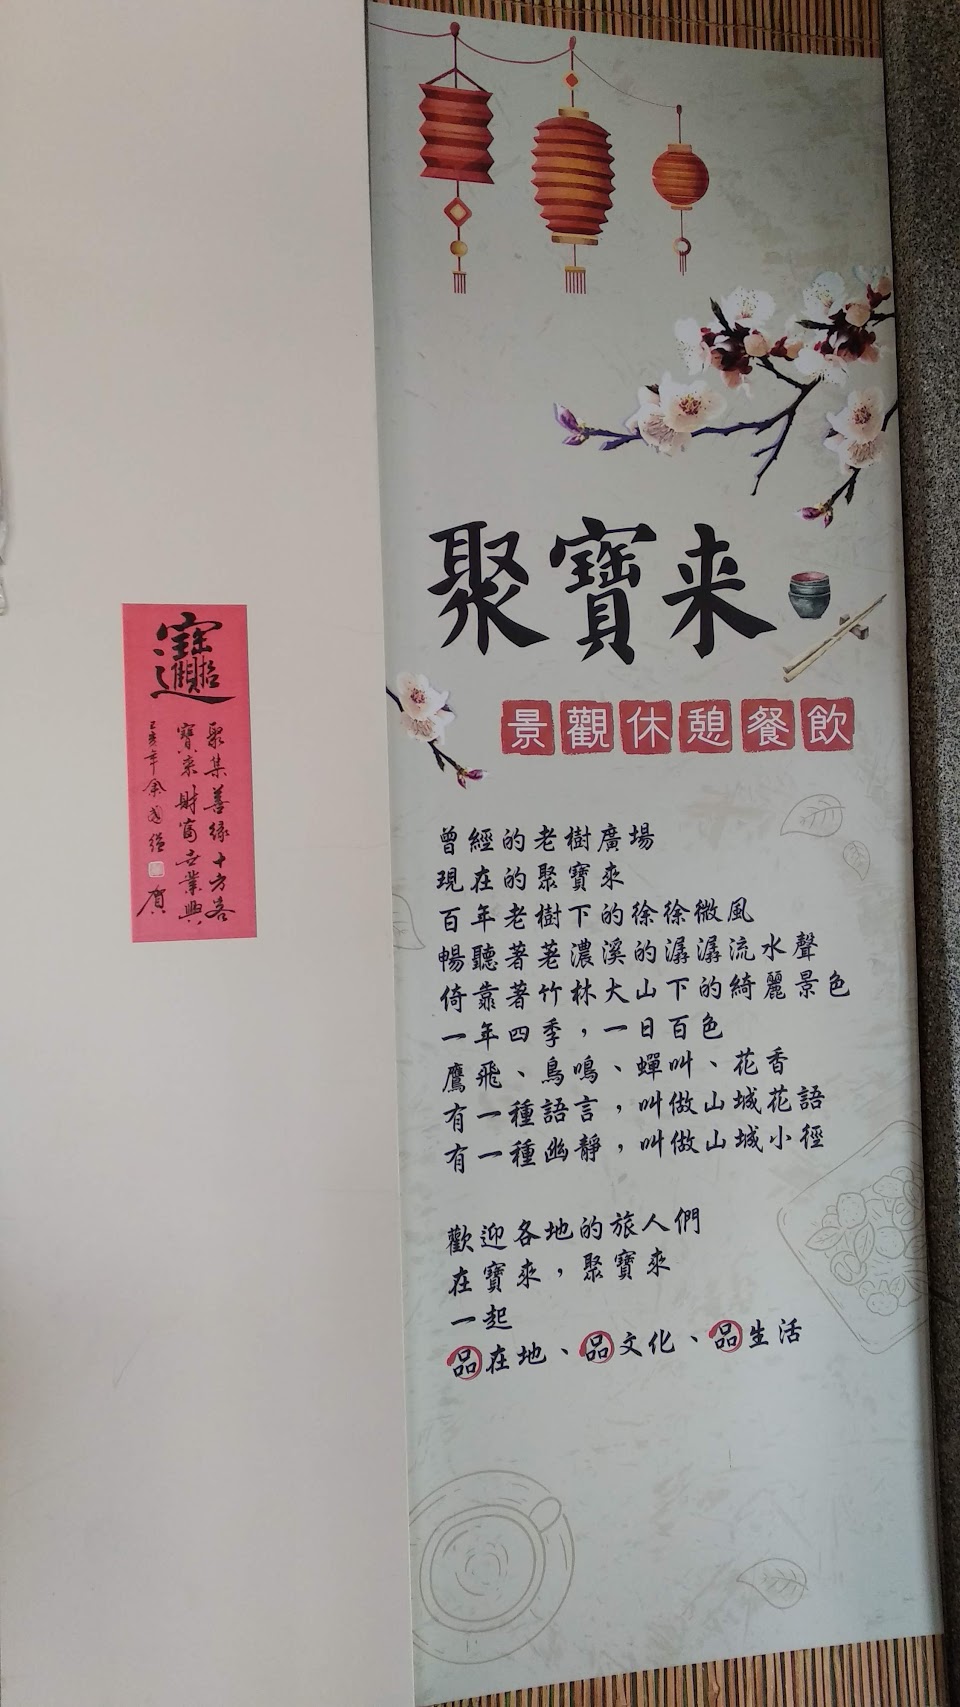 聚寶来
景觀休憩餐飲
曾經的老樹廣場
現在的聚寶來
百年老樹下的徐徐微風
暢聽著荖濃溪的潺潺流水聲
倚靠著竹林大山下的綺麗景色
一年四季，一日百色
鷹飛、鳥鳴、蟬叫、花香
有一種語言，叫做山城花語
有一種幽靜，叫做山城小徑
歡迎各地的旅人們
在寶來，聚寶來
一起
品在地、品文化、品生活
聚集善緣十方客
寶來財富世業興
己亥年余國
賀